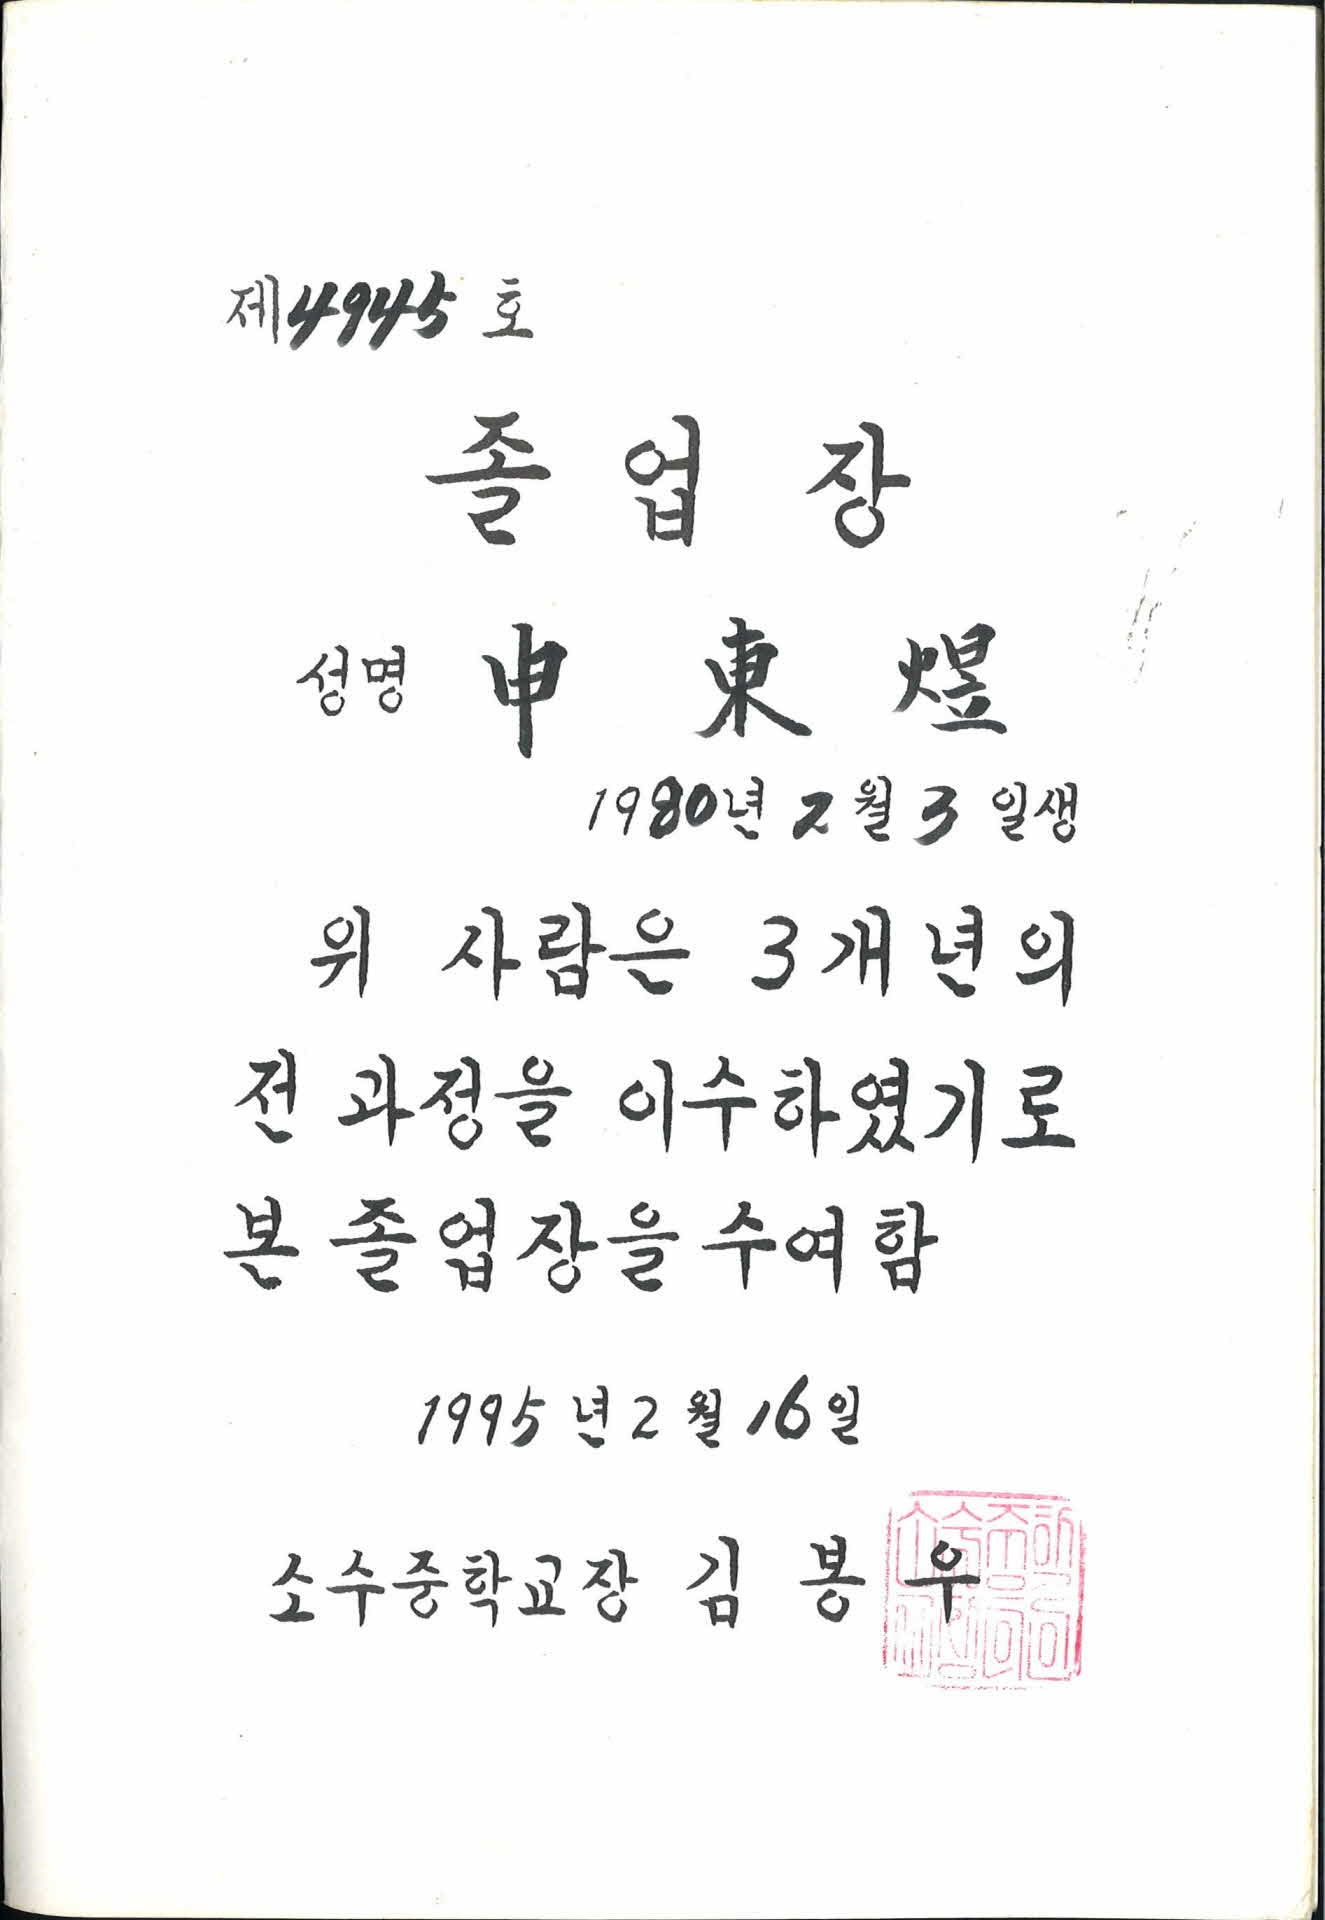 제4945호
졸업장
성명 申東煜
1980년 2월 3일생
위 사람은 3개년의
전 과정을 이수하였기로
본 졸업장을 수여함
1995년 2월 16일
소수중학교장 김봉우